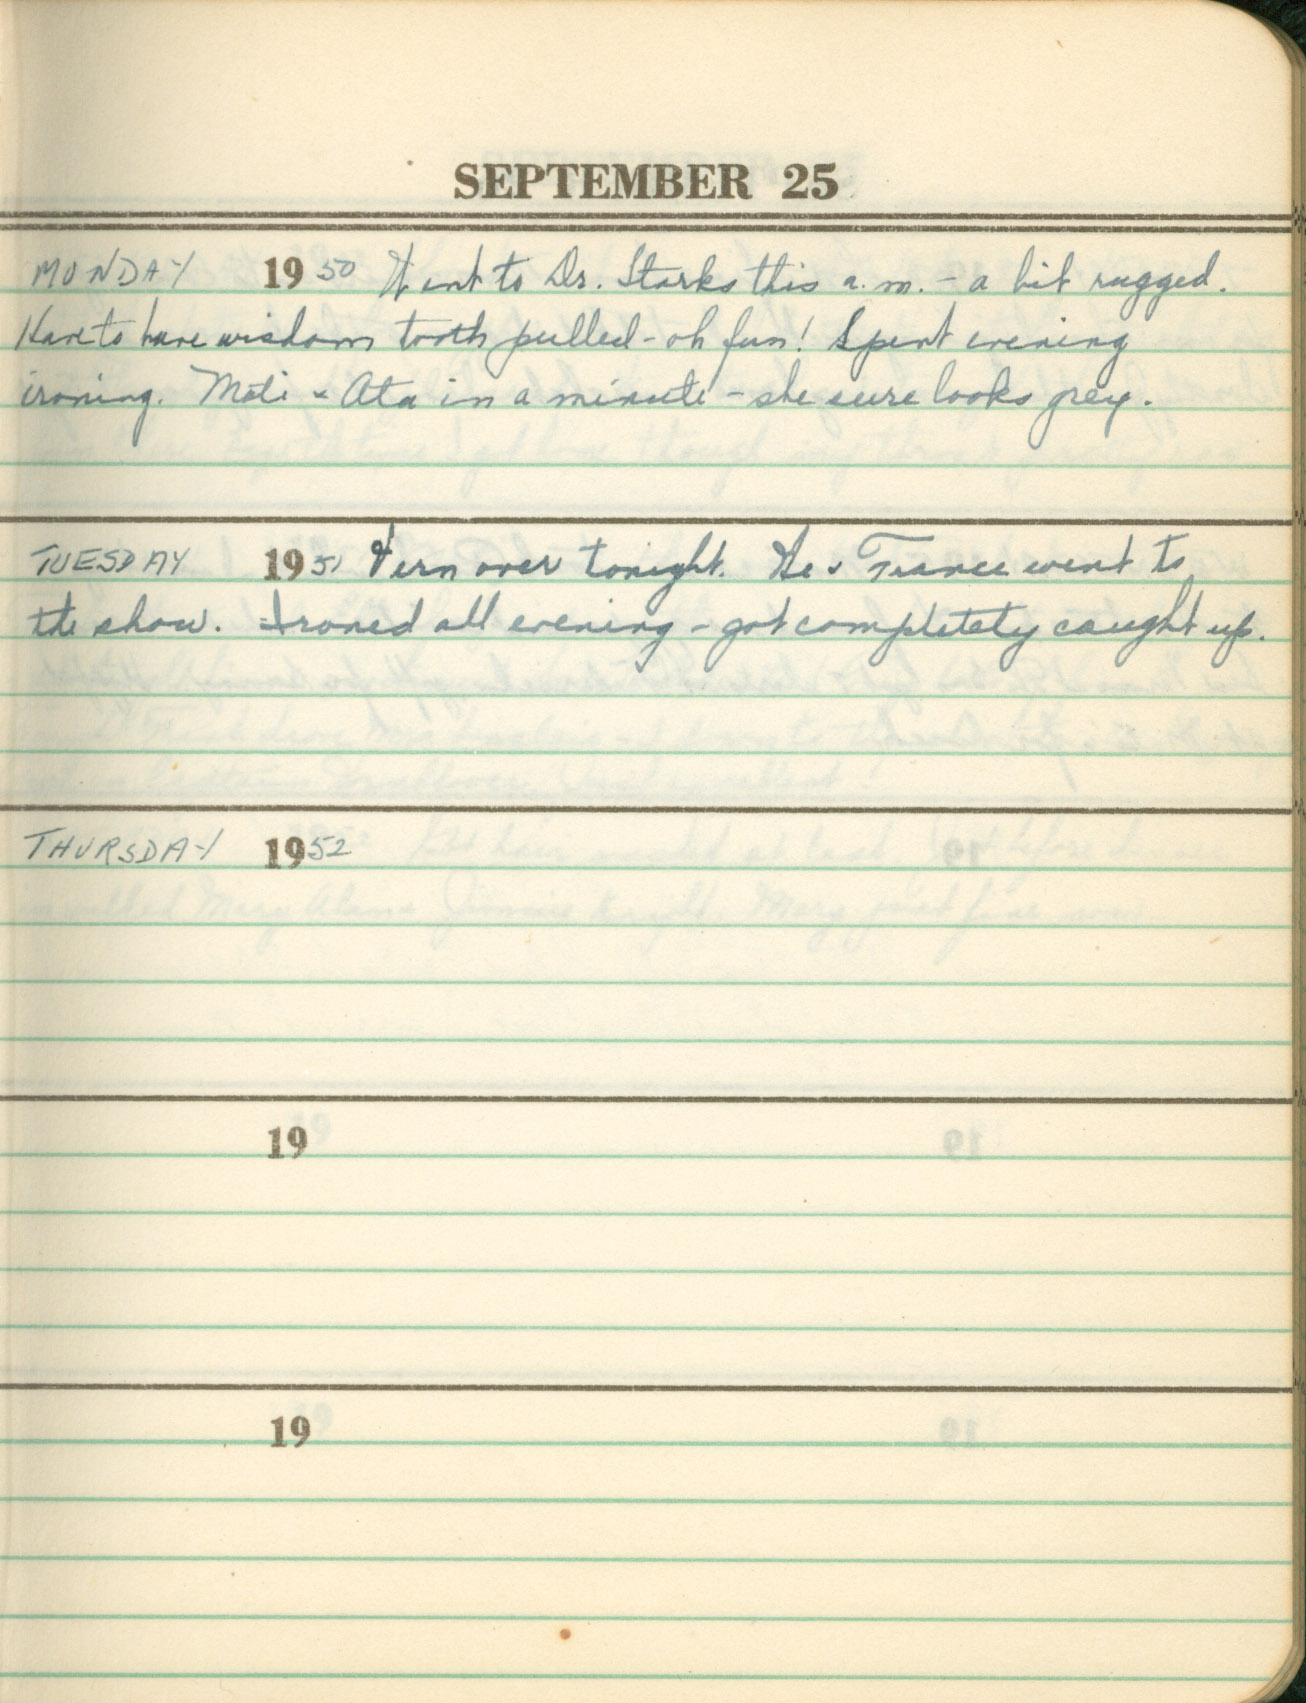 SEPTEMBER 25
MONDAY 1950 Went to Dr. Starks this a.m. - a bit rugged.
Have to have wisdom tooth pulled - oh fun! Spent evening
ironing. Moti & Ata in a minute - she sure looks grey.
TUESDAY 1951 Vern over tonight. He & France went to
the show. Ironed all evening - got completely caught up.
THURSDAY 1952
19
19